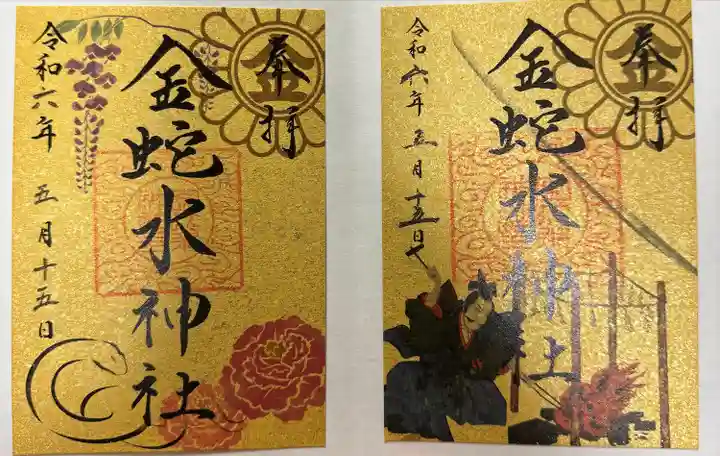 奉拝
金
金蛇水神社
令和六年 五月十五日
奉拝
金
金蛇水神社
令和六年 五月十五日